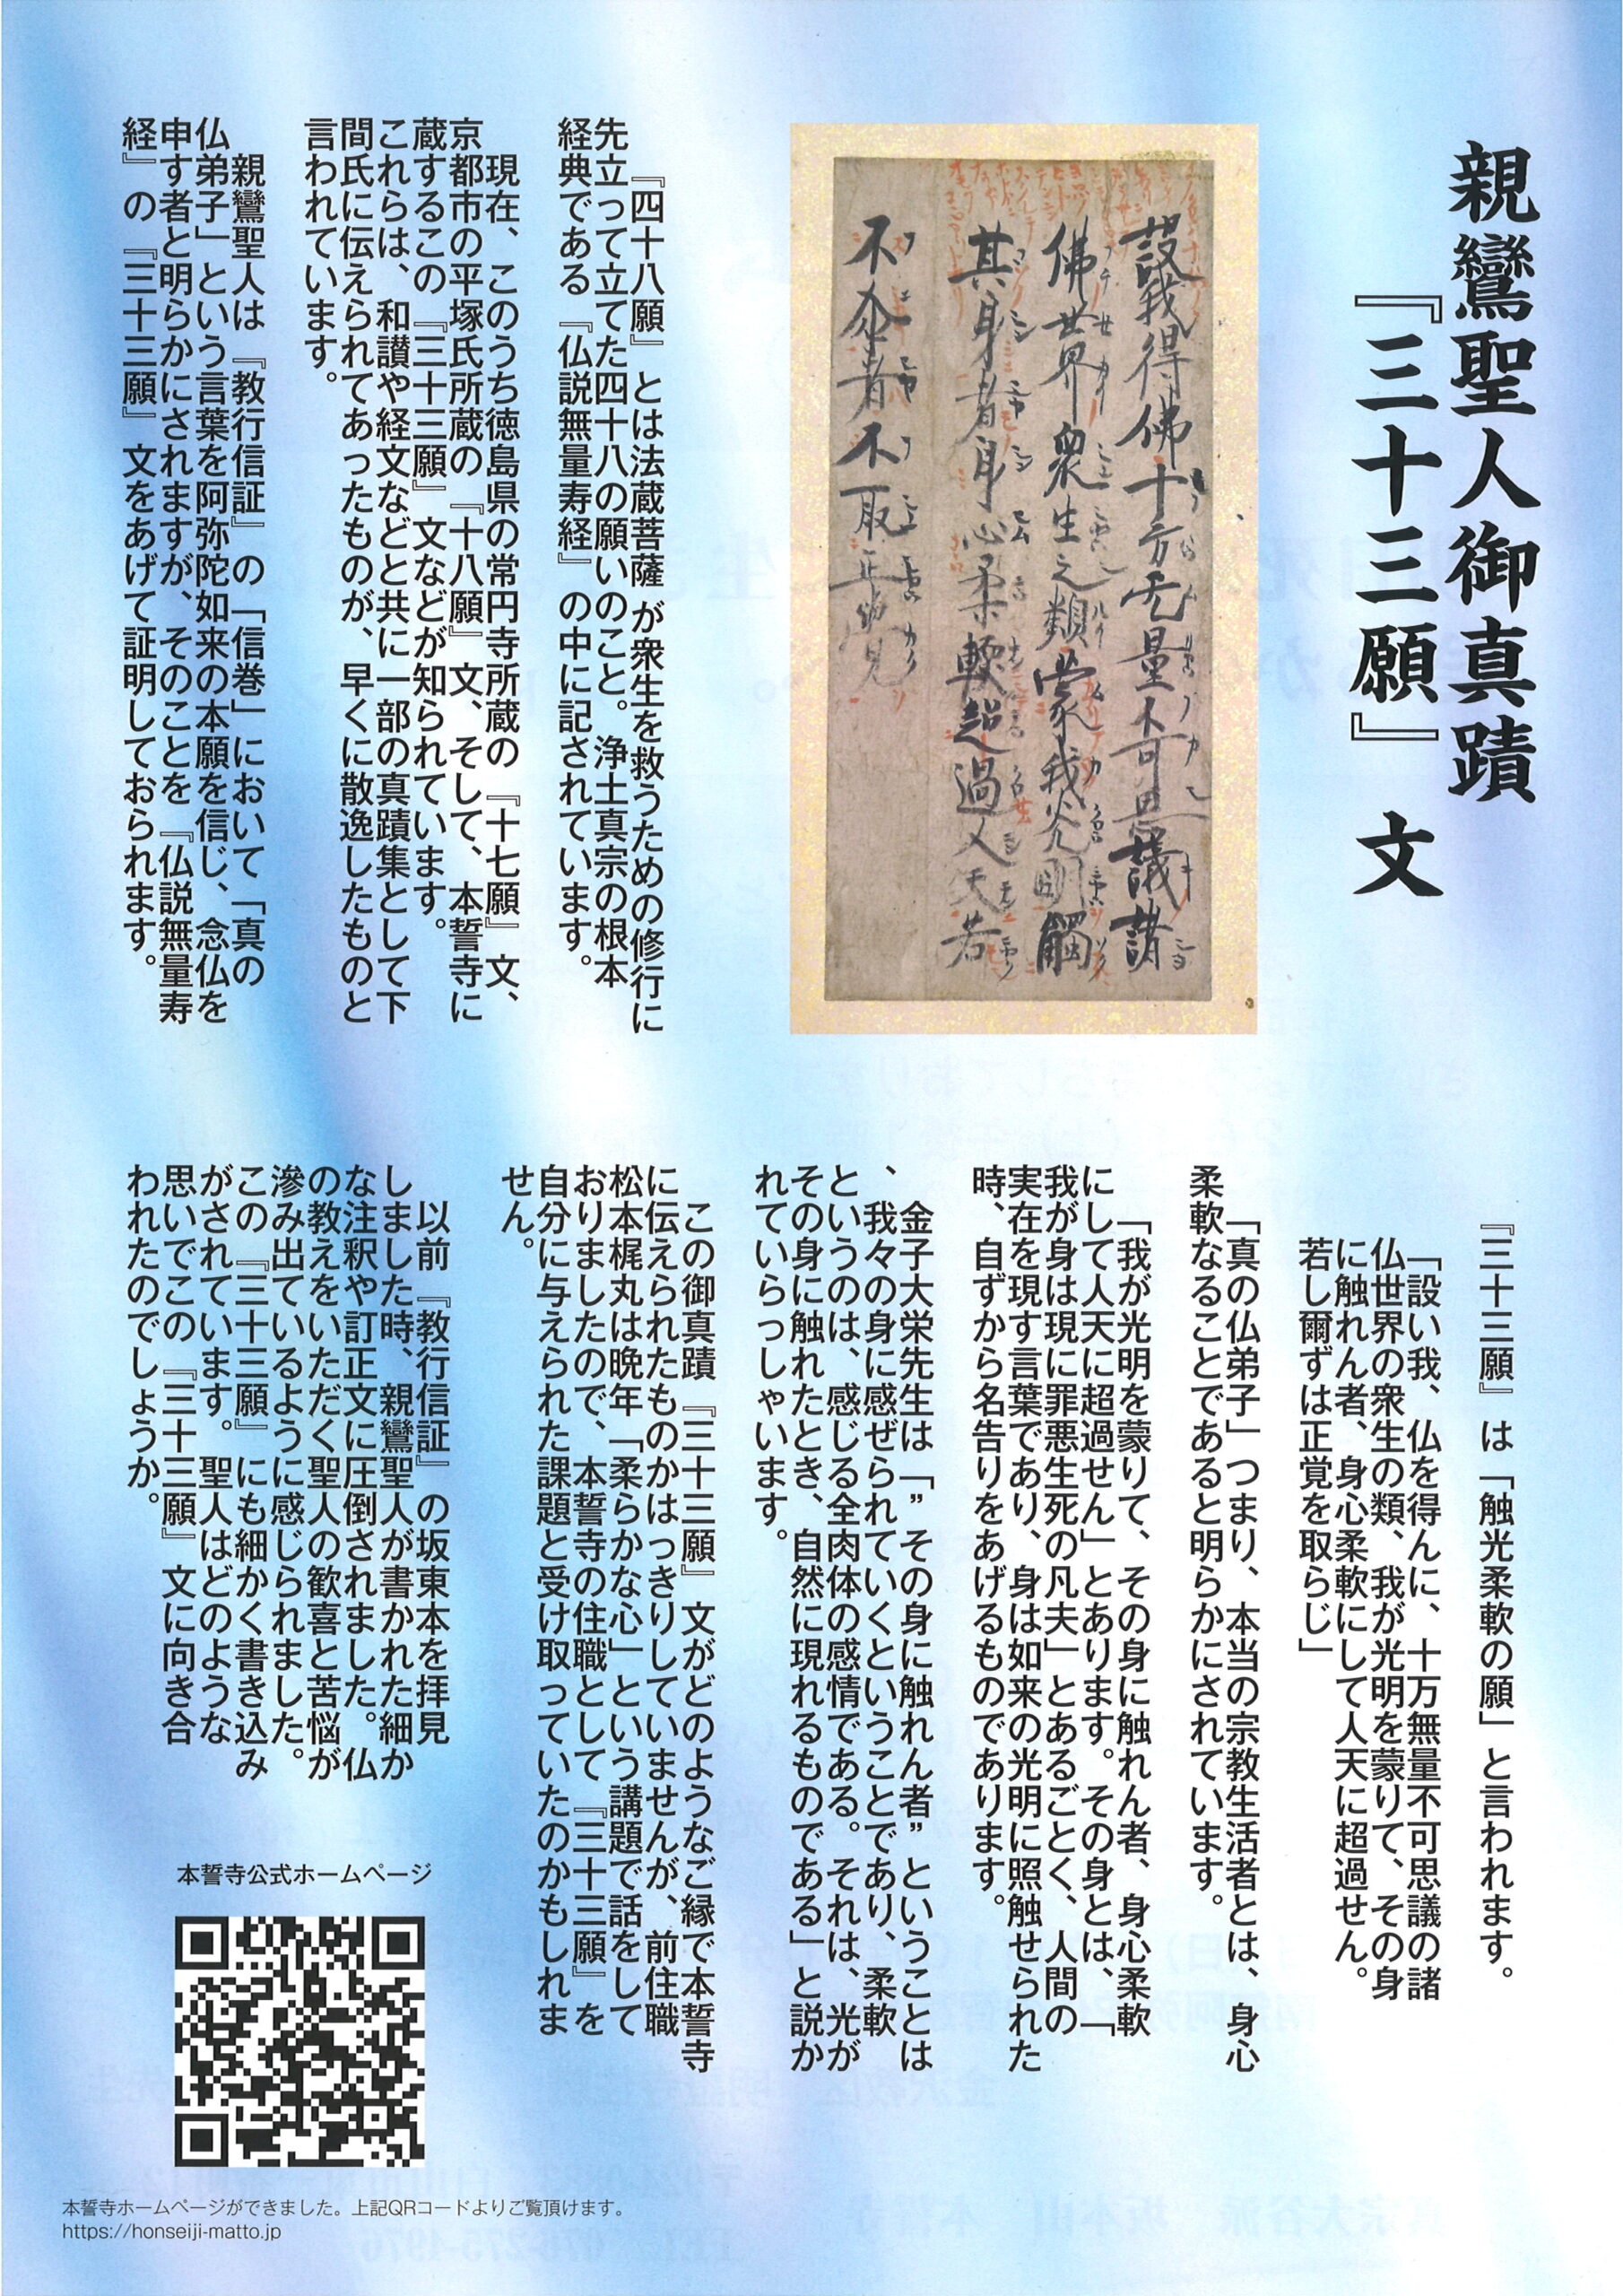 親鸞聖人御真蹟
『三十三願』文
設我得佛十方无量不可思議諸
佛世界衆生之類蒙我光明觸
其身者身心柔軟超過人天若
不尒者不取正覚
『四十八願』とは法蔵菩薩が衆生を救うための修行に
先立って立てた四十八の願いのこと。浄土真宗の根本
経典である『仏説無量寿経』の中に記されています。
現在、このうち徳島県の常円寺所蔵の『十七願』文、
京都市の平塚氏所蔵の『十八願』文、そして、本誓寺に
蔵するこの『三十三願』文などが知られています。
これらは、和讃や経文などと共に一部の真蹟集として下
間氏に伝えられてあったものが、早くに散逸したものと
言われています。
親鸞聖人は『教行信証』の「信巻」において「真の
仏弟子」という言葉を阿弥陀如来の本願を信じ、念仏を
申す者と明らかにされますが、そのことを『仏説無量寿
経』の『三十三願』文をあげて証明しておられます。
『三十三願』は「触光柔軟の願」と言われます。
「設い我、仏を得んに、十万無量不可思議の諸
仏世界の衆生の類、我が光明を蒙りて、その身
に触れん者、身心柔軟にして人天に超過せん。
若し爾ずは正覚を取らじ」
「真の仏弟子」つまり、本当の宗教生活者とは、身心
柔軟なることであると明らかにされています。
「我が光明を蒙りて、その身に触れん者、身心柔軟
にして人天に超過せん」とあります。その身とは、「
我が身は現に罪悪生死の凡夫」とあるごとく、人間の
実在を現す言葉であり、身は如来の光明に照触せられた
時、自ずから名告りをあげるものであります。
金子大栄先生は「”その身に触れん者”ということは
、我々の身に感ぜられていくということであり、柔軟
というのは、感じる全肉体の感情である。それは、光が
その身に触れたとき、自然に現れるものである」と説か
れていらっしゃいます。
この御真蹟『三十三願』文がどのようなご縁で本誓寺
に伝えられたものかはっきりしていませんが、前住職
松本梶丸は晩年「柔らかな心」という講題で話をして
おりましたので、本誓寺の住職として『三十三願』を
自分に与えられた課題と受け取っていたのかもしれま
せん。
以前『教行信証』の坂東本を拝見
しました時、親鸞聖人が書かれた細か
な注釈や訂正文に圧倒されました。仏
の教えをいただく聖人の歓喜と苦悩が
滲み出ているように感じられました。
この『三十三願』にも細かく書き込み
がされています。聖人はどのような
思いでこの『三十三願』文に向き合
われたのでしょうか。
本誓寺公式ホームページ
本誓寺ホームページができました。上記QRコードよりご覧頂けます。
https://honseiji-matto.jp